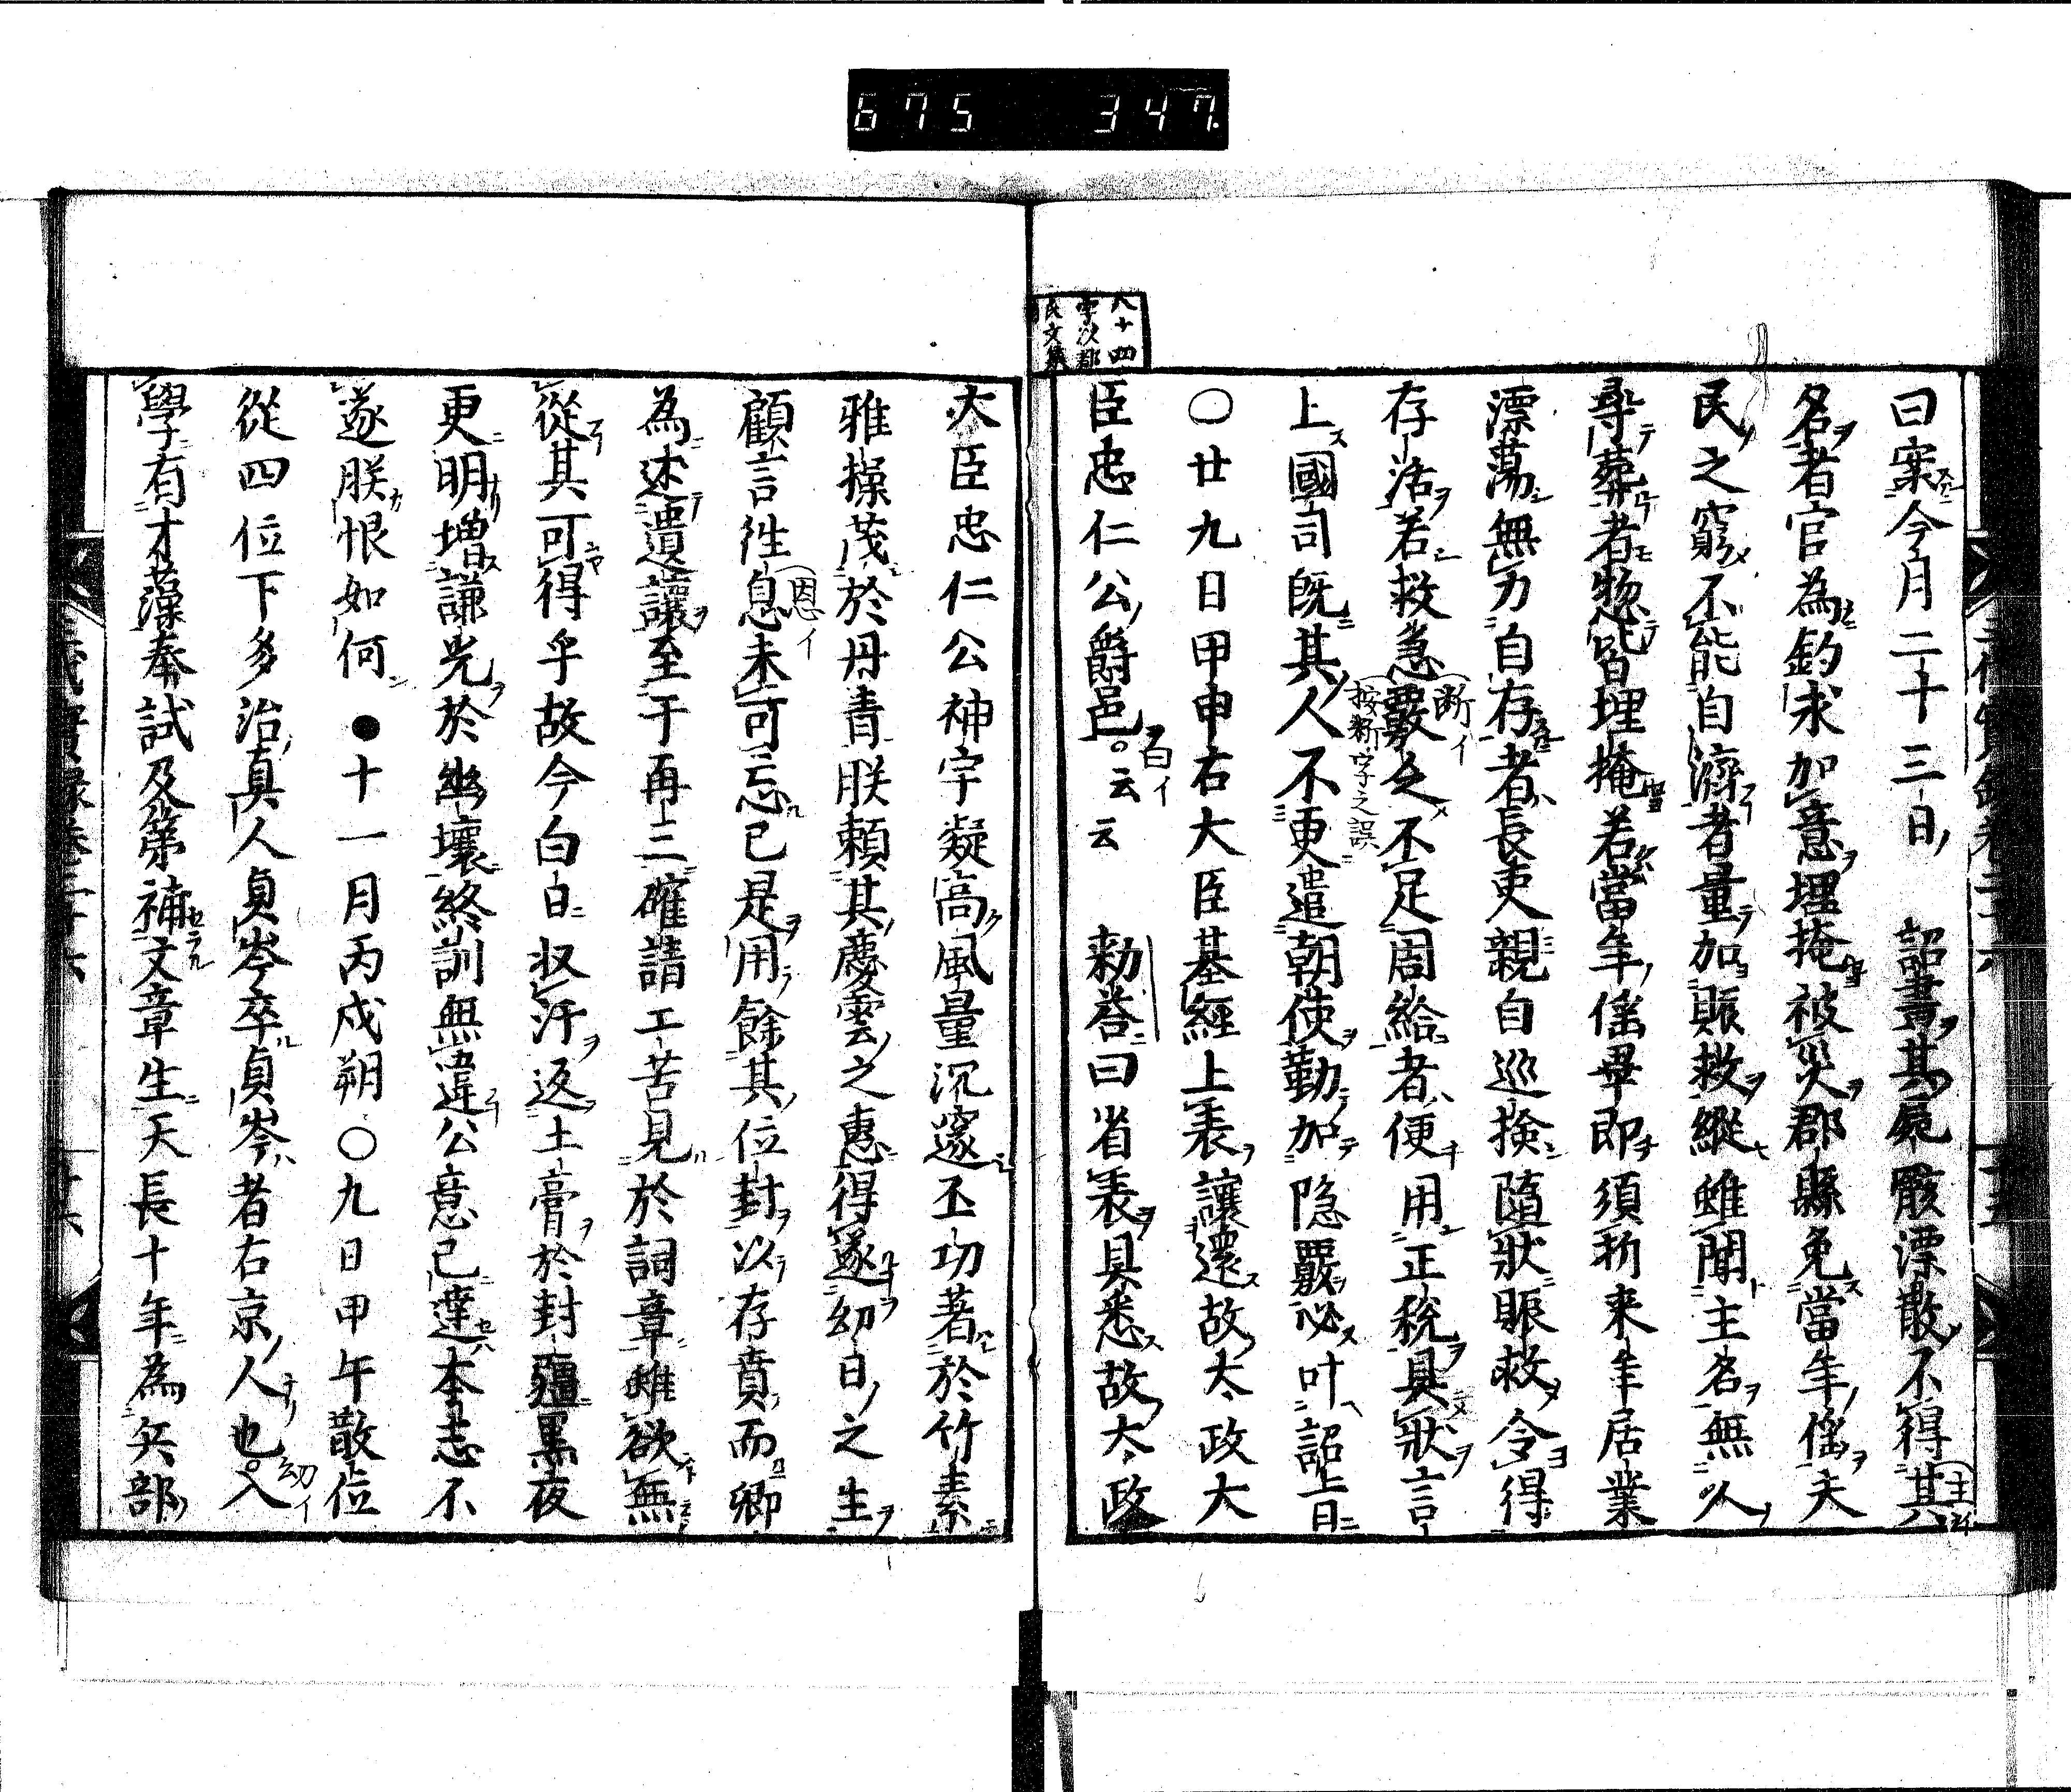 675 347
曰案今月二十三日詔書其屍骸漂散不得其
名者官為釣求加意埋掩被災郡縣免當年傜夫
民之窮不能自濟者量加賑救縱雖聞主名無人
尋葬者惣皆埋掩若當年傜畢即須折来年居業
漂蕩無力自存者長吏親自巡撿隨狀賑救令得
存活若救急覈之不足周給者便用正税具狀言
上國司既其人不更遣朝使勤加隐覈必叶詔旨
〇廿九日甲申右大臣基經上表讓還故太政大
臣忠仁公爵邑云云 勅荅曰省表具悉故太政
断イ
按断字之誤
百イ
主イ
大臣忠仁公神宇凝高風量沉邃丕功著於竹素
雅操茂於丹青朕頼其慶雲之惠得遂幼日之生
顧言徃息未可忘已是用餘其位封以存賁而卿
為述遺讓至于再三確請工苦見於詞章雖欲無
從其可得乎故今白日収汗返土膏於封疆黒夜
更明增謙光於幽壤終訓無違公意已達本志不
遂朕恨如何●十一月丙戌朔〇九日甲午散位
從四位下多治真人貞岑卒貞岑者右京人也入
學有才藻奉試及第補文章生天長十年為兵部
恩イ
幼イ